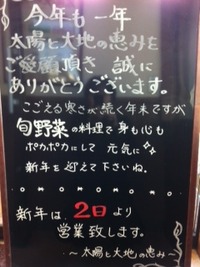 今年も一年
太陽と大地の恵みを
ご愛顧頂き 誠に
ありがとうございます。
こごえる寒さが続く年末ですが
旬野菜の料理で身も心も
ポカポカにして 元気に
新年を迎えて下さいね。
新年は、2日より
営業致します。
～太陽と大地の恵み～